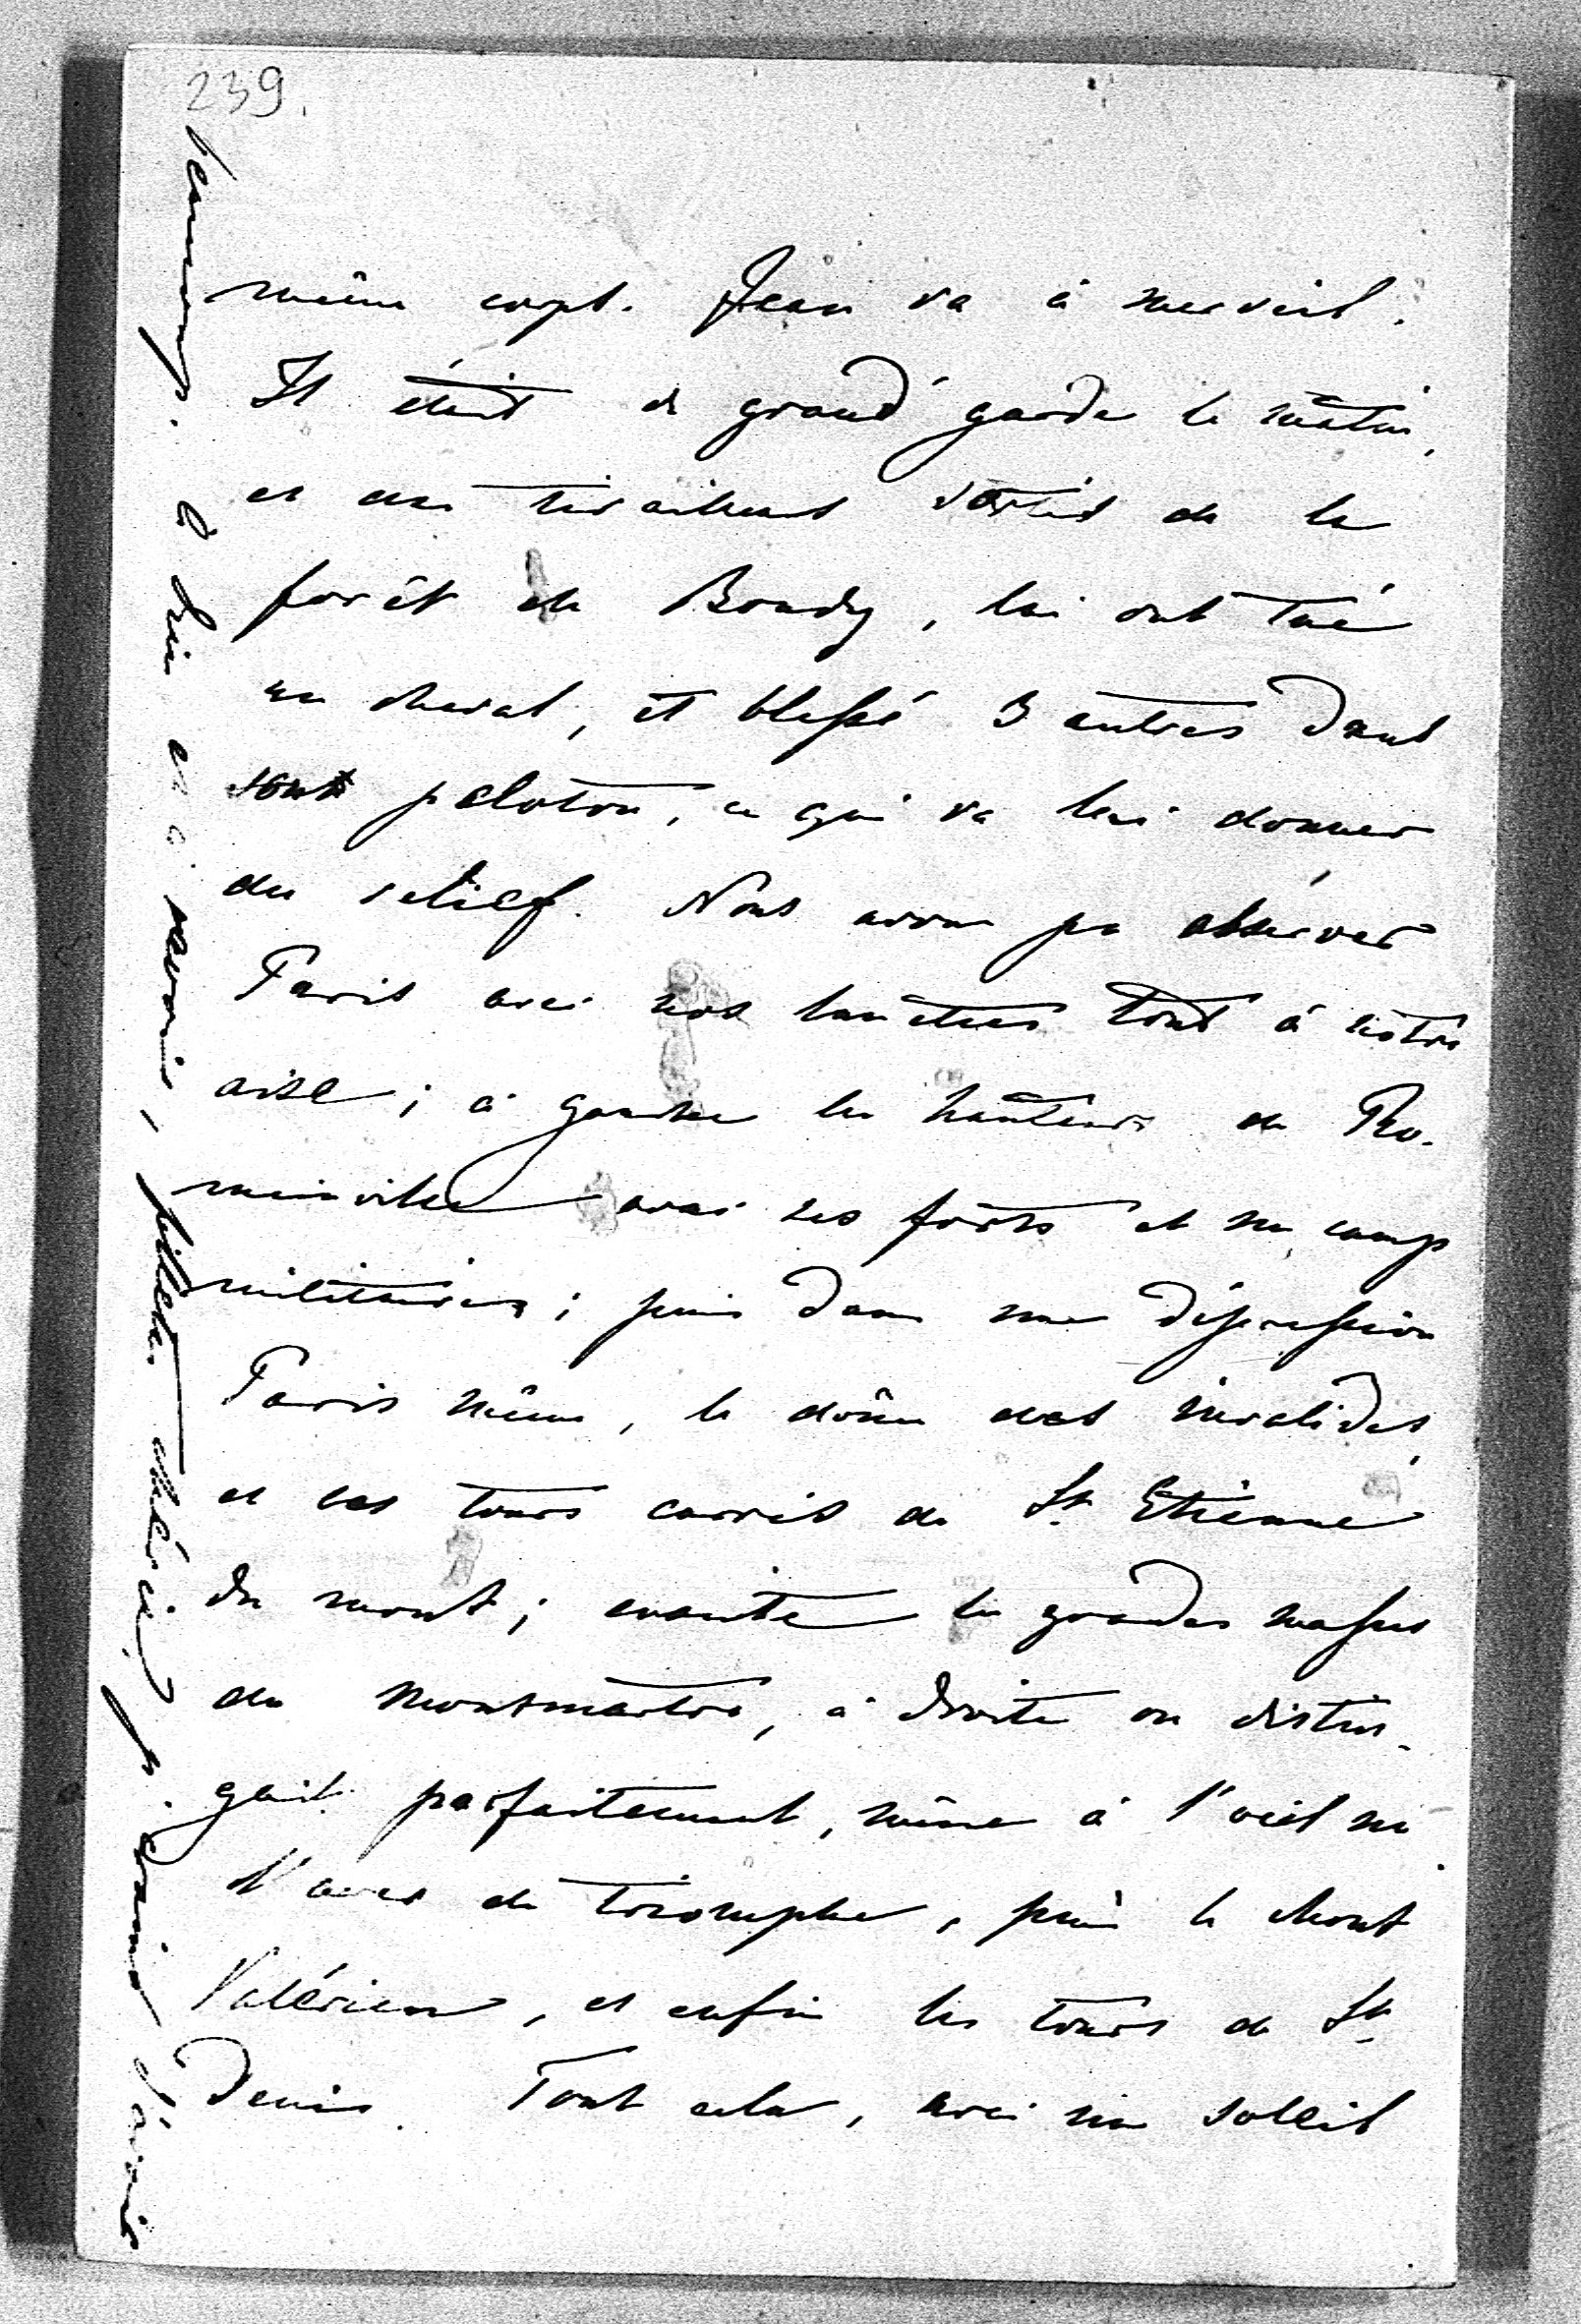 239.
même corps. Jean va à merveil.
Il était de grand'garde le mâtin,
et des tirailleurs sortis de la
forêt de Bondy, lui ont tué
un cheval, et blessé 3 autres dans
son peloton, ce qui va lui donner
du relief. Nous avons pu observer
Paris avec nos lunettes tout à nôtre
aise; à gauche les hauteurs de Ro-
mainville avec ses forts et un camp
militaire; puis dans une dépression
Paris même, le dôme des invalides,
et les tours carrés de St. Etienne
du mont; ensuite les grandes masses
de Montmartre, à droite on distin-
guait parfaitement, même à l'oeil nu
l'arc de triomphe, puis le Mont
Valérien, et enfin les tours de St.
Denis. Tout cela, avec un soleil
Adieu et à revoir, fillette chérie,